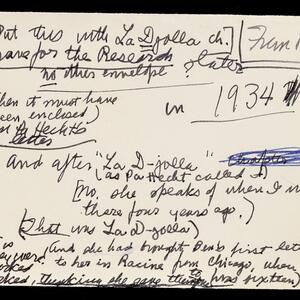 Put this with La D-jolla ch.] From
save for the Research later
no other envelope
when it must have
been enclosed) in 1934
Hecht's
letter
And after "La D-jolla"
(as Pa Hecht called it)
[no, she speaks of when I was
there four years ago.)
(that was La D-jolla)
(and she had brought Ben's first
to her in Racine from Chicago, when
thinking she gave him was sixteen)